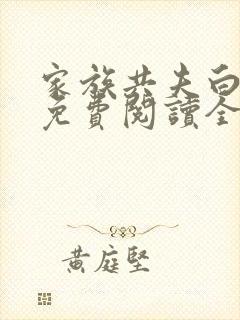 家族共夫白
免費閱讀全
黃庭堅